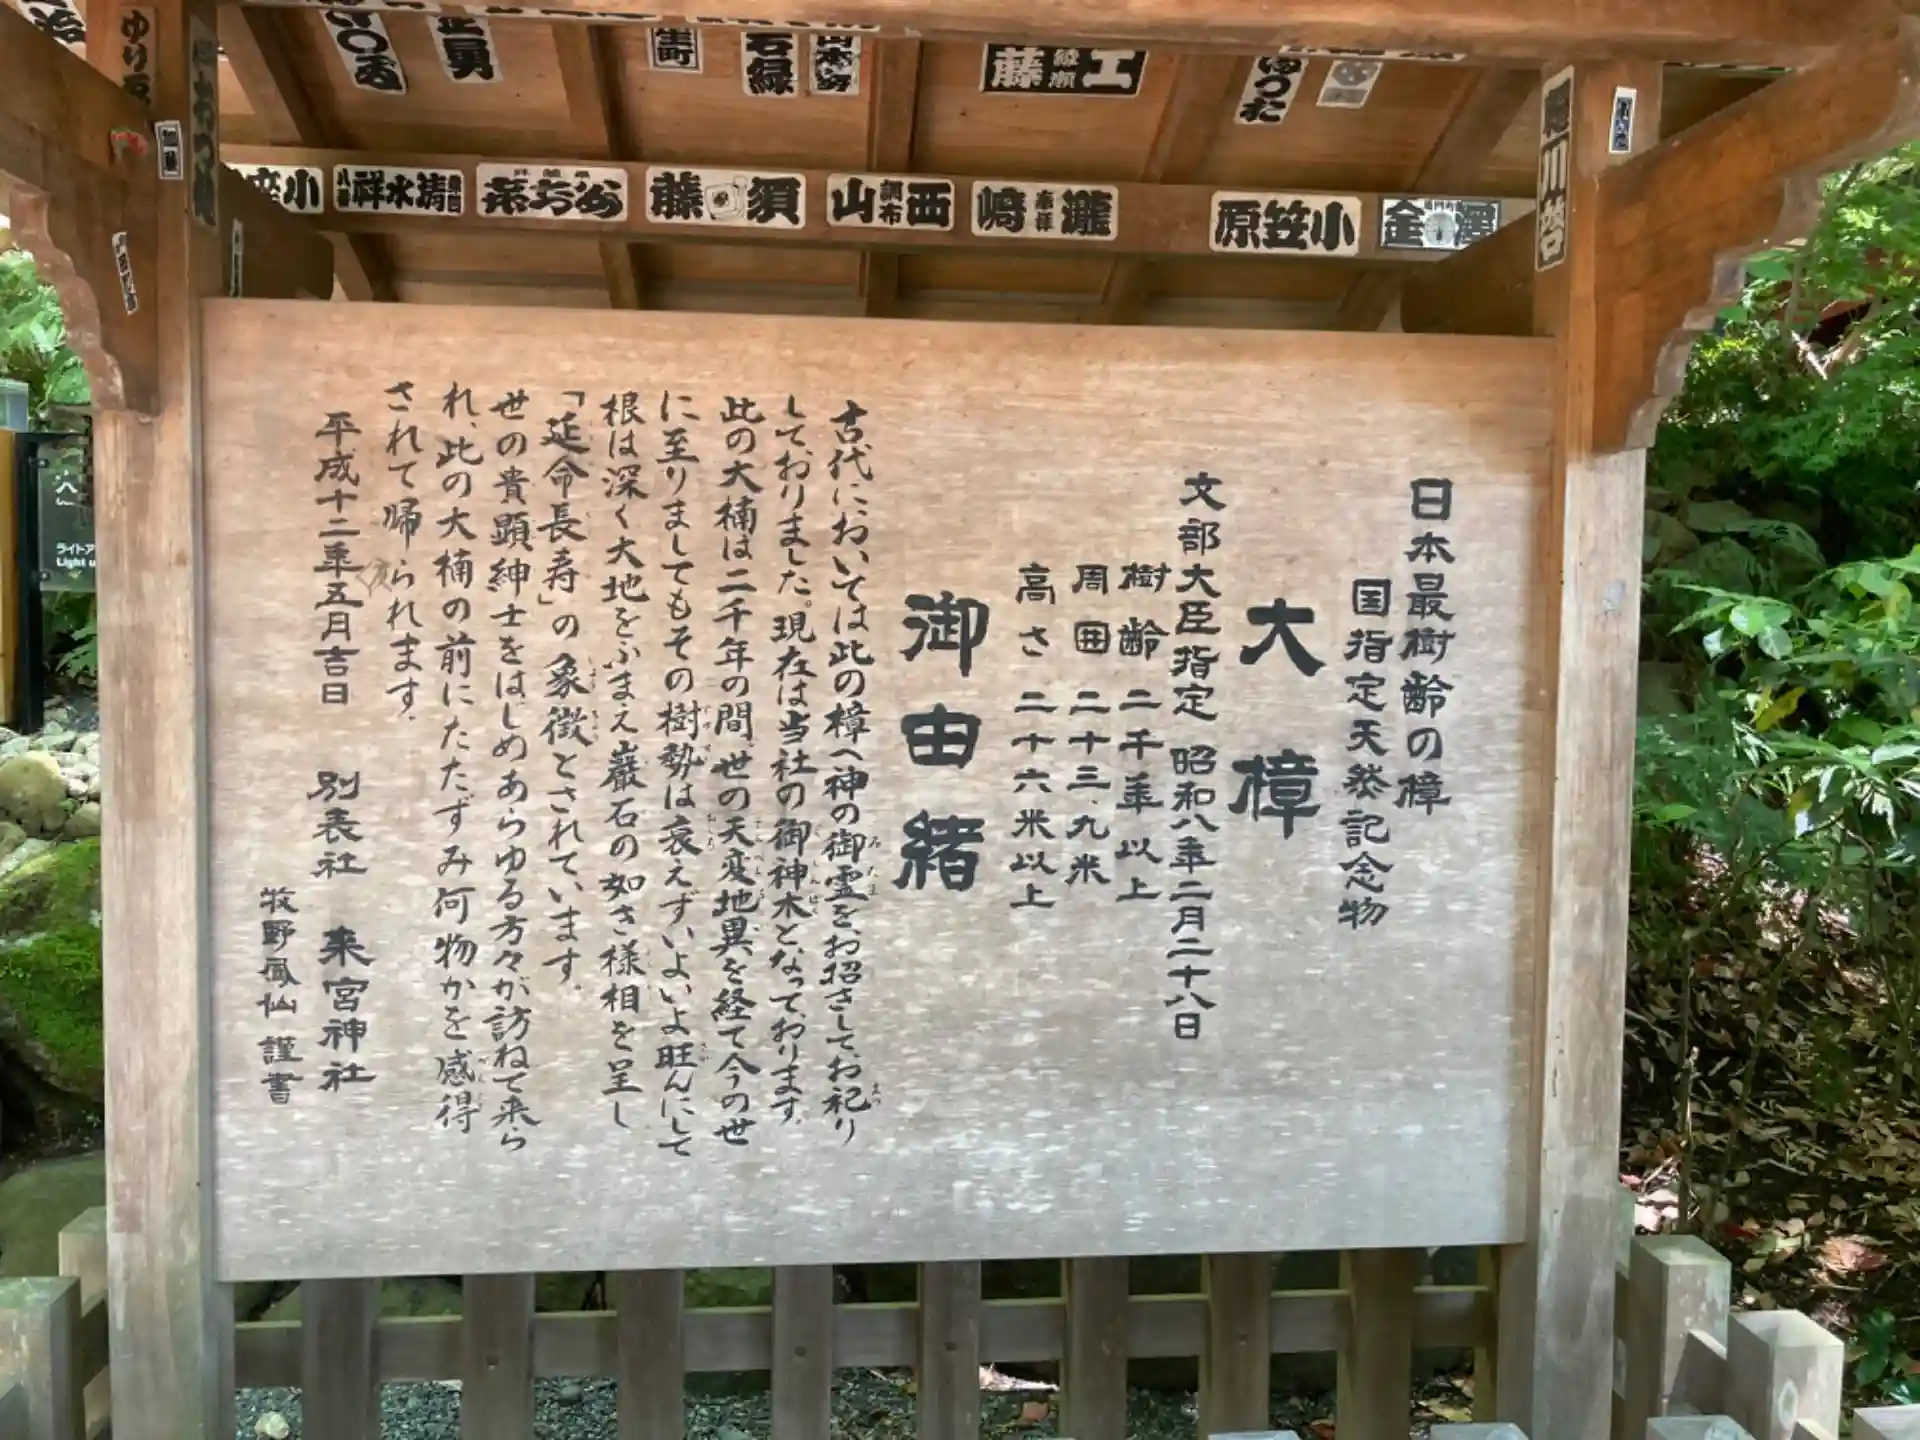 日本最樹齢の樟
国指定天然記念物
大樟
文部大臣指定 昭和八年二月二十八日
樹齢 二千年以上
周囲 二十三、九米
高さ 二十六米以上
御由緒
古代においては此の樟へ神の御霊をお招きして、お祀り
しておりました。現在は当社の御神木となっております。
此の大楠は二千年の間、世の天変地異を経て今の世
に至りましてもその樹勢は衰えずいよいよ旺んにして
根は深く大地をふまえ巌石の如き様相を呈し
「延命長寿」の象徴とされています。
世の貴顕紳士をはじめあらゆる方々が訪ねて来ら
れ、此の大楠の前にたたずみ何物かを感得
されて帰られます。
平成十二年五月吉日 別表社 来宮神社
牧野鳳仙 謹書
工 綾瀬 藤
小笠原
瀧 奉拝 﨑
西 調布 山
須 藤
清水祥八
小
正男
生町
若緑
ライトア
Light u